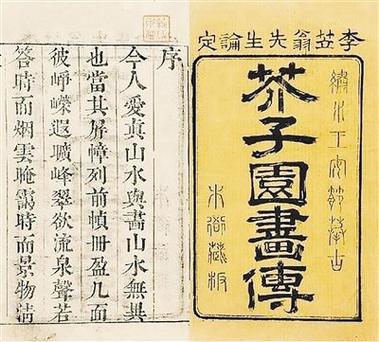 李笠翁先生論定
繡水王安節摹古
芥子園畫傳
本衙藏板
序
今人愛真山水與畫山水無異
也當其屏幛列前幀冊盈几面
彼崢嶸遐曠峰翠欲流泉聲若
答時而烟雲晻靄時而景物清